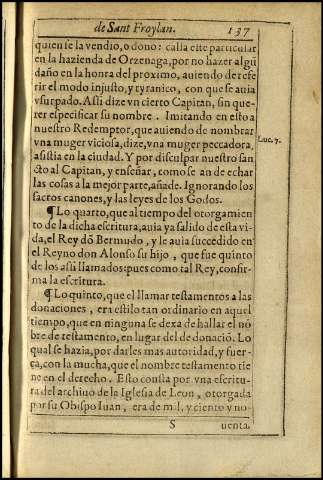 de Sant Froylan. 137
quien se la vendio, o dono: calla este particular
en la hazienda de Orzenaga, por no hazer algũ
daño en la honra del proximo, auiendo de refe
rir el modo injusto, y tyranico, con que se auia
vsurpado. Assi dize vn cierto Capitan, sin que-
rer especificar su nombre. Imitando en esto a
nuestro Redemptor, que auiendo de nombrar
vna muger viciosa, dize, vna muger peccadora,
Luc. 7.
asistia en la ciudad. Y por disculpar nuestro san
cto al Capitan, y enseñar, como se an de echar
las cosas a la mejor parte, añade. Ignorando los
sacros canones, y las leyes de los Godos.
¶ Lo quarto, que al tiempo del otorgamien
to de la dicha escritura, auia ya salido de esta vi-
da, el Rey dõ Bermudo, y le auia succedido en
el Reyno don Alonso su hijo, que fue quinto
de los assi llamados: pues como tal Rey, confir-
ma la escritura.
¶ Lo quinto, que el llamar testamentos a las
donaciones, era estilo tan ordinario en aquel
tiempo, que en ninguna se dexa de hallar el nõ
bre de testamento, en lugar del de donació. Lo
qual se hazia, por darles mas autoridad, y fuer-
ça, con la mucha, que el nombre testamento tie
ne en el derecho. Esto consta por vna escritu-
ra del archiuo de la Iglesia de Leon, otorgada
por su Obispo Iuan, era de mil, y ciento y no-
S uenta.